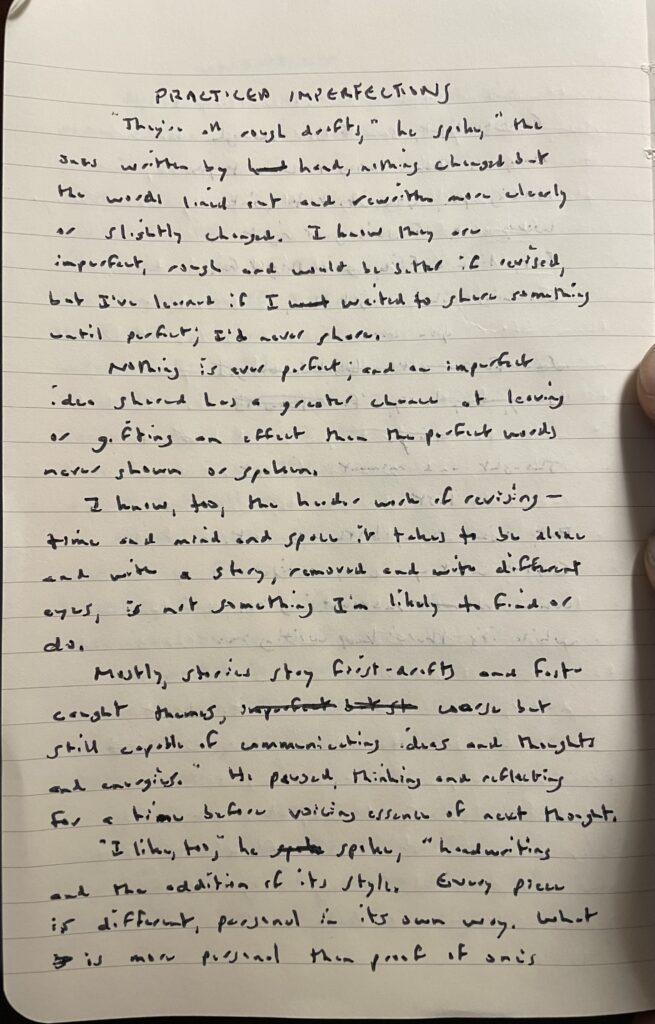 PRACTICED IMPERFECTIONS
"They're all rough drafts," he spoke, "the
ones written by hand, nothing changed but
the words lined out and rewritten more clearly
or slightly changed. I know they are
imperfect, rough and would be better if revised,
but I've learned if I waited to share something
until perfect; I'd never share.
Nothing is ever perfect; and an imperfect
idea shared has a greater chance at leaving
or gifting an effect than the perfect words
never shown or spoken.
I know, too, the harder work of revising—
time and mind and space it takes to be alone
and with a story, removed and with different
eyes, is not something I'm likely to find or
do.
Mostly, stories stay first-drafts and fast-
caught themes, imperfect but st coarse but
still capable of communicating ideas and thoughts
and energies." He paused, thinking and reflecting
for a time before voicing essence of next thought.
"I like, too," he spoke spoke, "handwriting
and the addition of its style. Every piece
is different, personal in its own way. What
is more personal than proof of one's